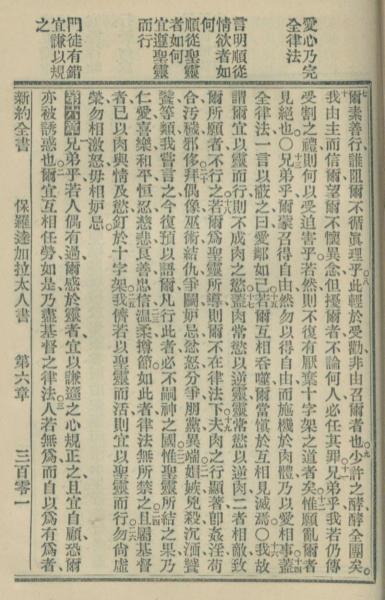 愛心乃完
全律法
言明順從
情欲者如
何
順從聖靈
者如何
宜遵聖靈
而行
門徒有錯
宜謙以規
之
爾素善行誰阻爾不循眞理乎此輕於受勸非由召爾者也少許之酵酵全團矣
我由主而信爾望爾不懷異念但擾爾者不論何人必任其罪兄弟乎我若仍傳
受割之禮則何以受迫害乎若然則不復有厭棄十字架之道者矣惟願亂爾者
見絕也〇兄弟乎爾蒙召得自由然勿以得自由而施機於肉體乃以愛相事蓋
全律法一言以蔽之曰愛鄰如己若爾互相吞噬爾當愼於互相見滅焉〇我故
謂爾宜以靈而行則不成肉之慾蓋肉常慾以逆靈靈常慾以逆肉二者相敵致
爾所願者不行之若爾爲聖靈所導則爾不在律法下夫肉之行顯著卽姦淫苟
合污穢邪侈拜偶像巫術結仇爭鬭妒忌忿怒分爭朋黨異端媢嫉兇殺沉湎讌
聲等類我嘗言之今復預以語爾凡行此者必不嗣神之國惟聖靈所結之果乃
仁愛喜樂和平恒忍慈悲良善忠信溫柔撙節如此者律法無所禁之且屬基督
者已以肉與情及慾釘於十字架我儕若以聖靈而活則宜以聖靈而行勿尙虛
榮勿相激怒毋相妒忌
第六章兄弟乎若人偶有過爾感於靈者宜以謙遜之心規正之且宜自顧恐爾
亦被誘惑也爾宜互相任勞如是乃盡基督之律法人若無爲而自以爲有爲者
新約全書 保羅達加拉太人書 第六章 三百零一